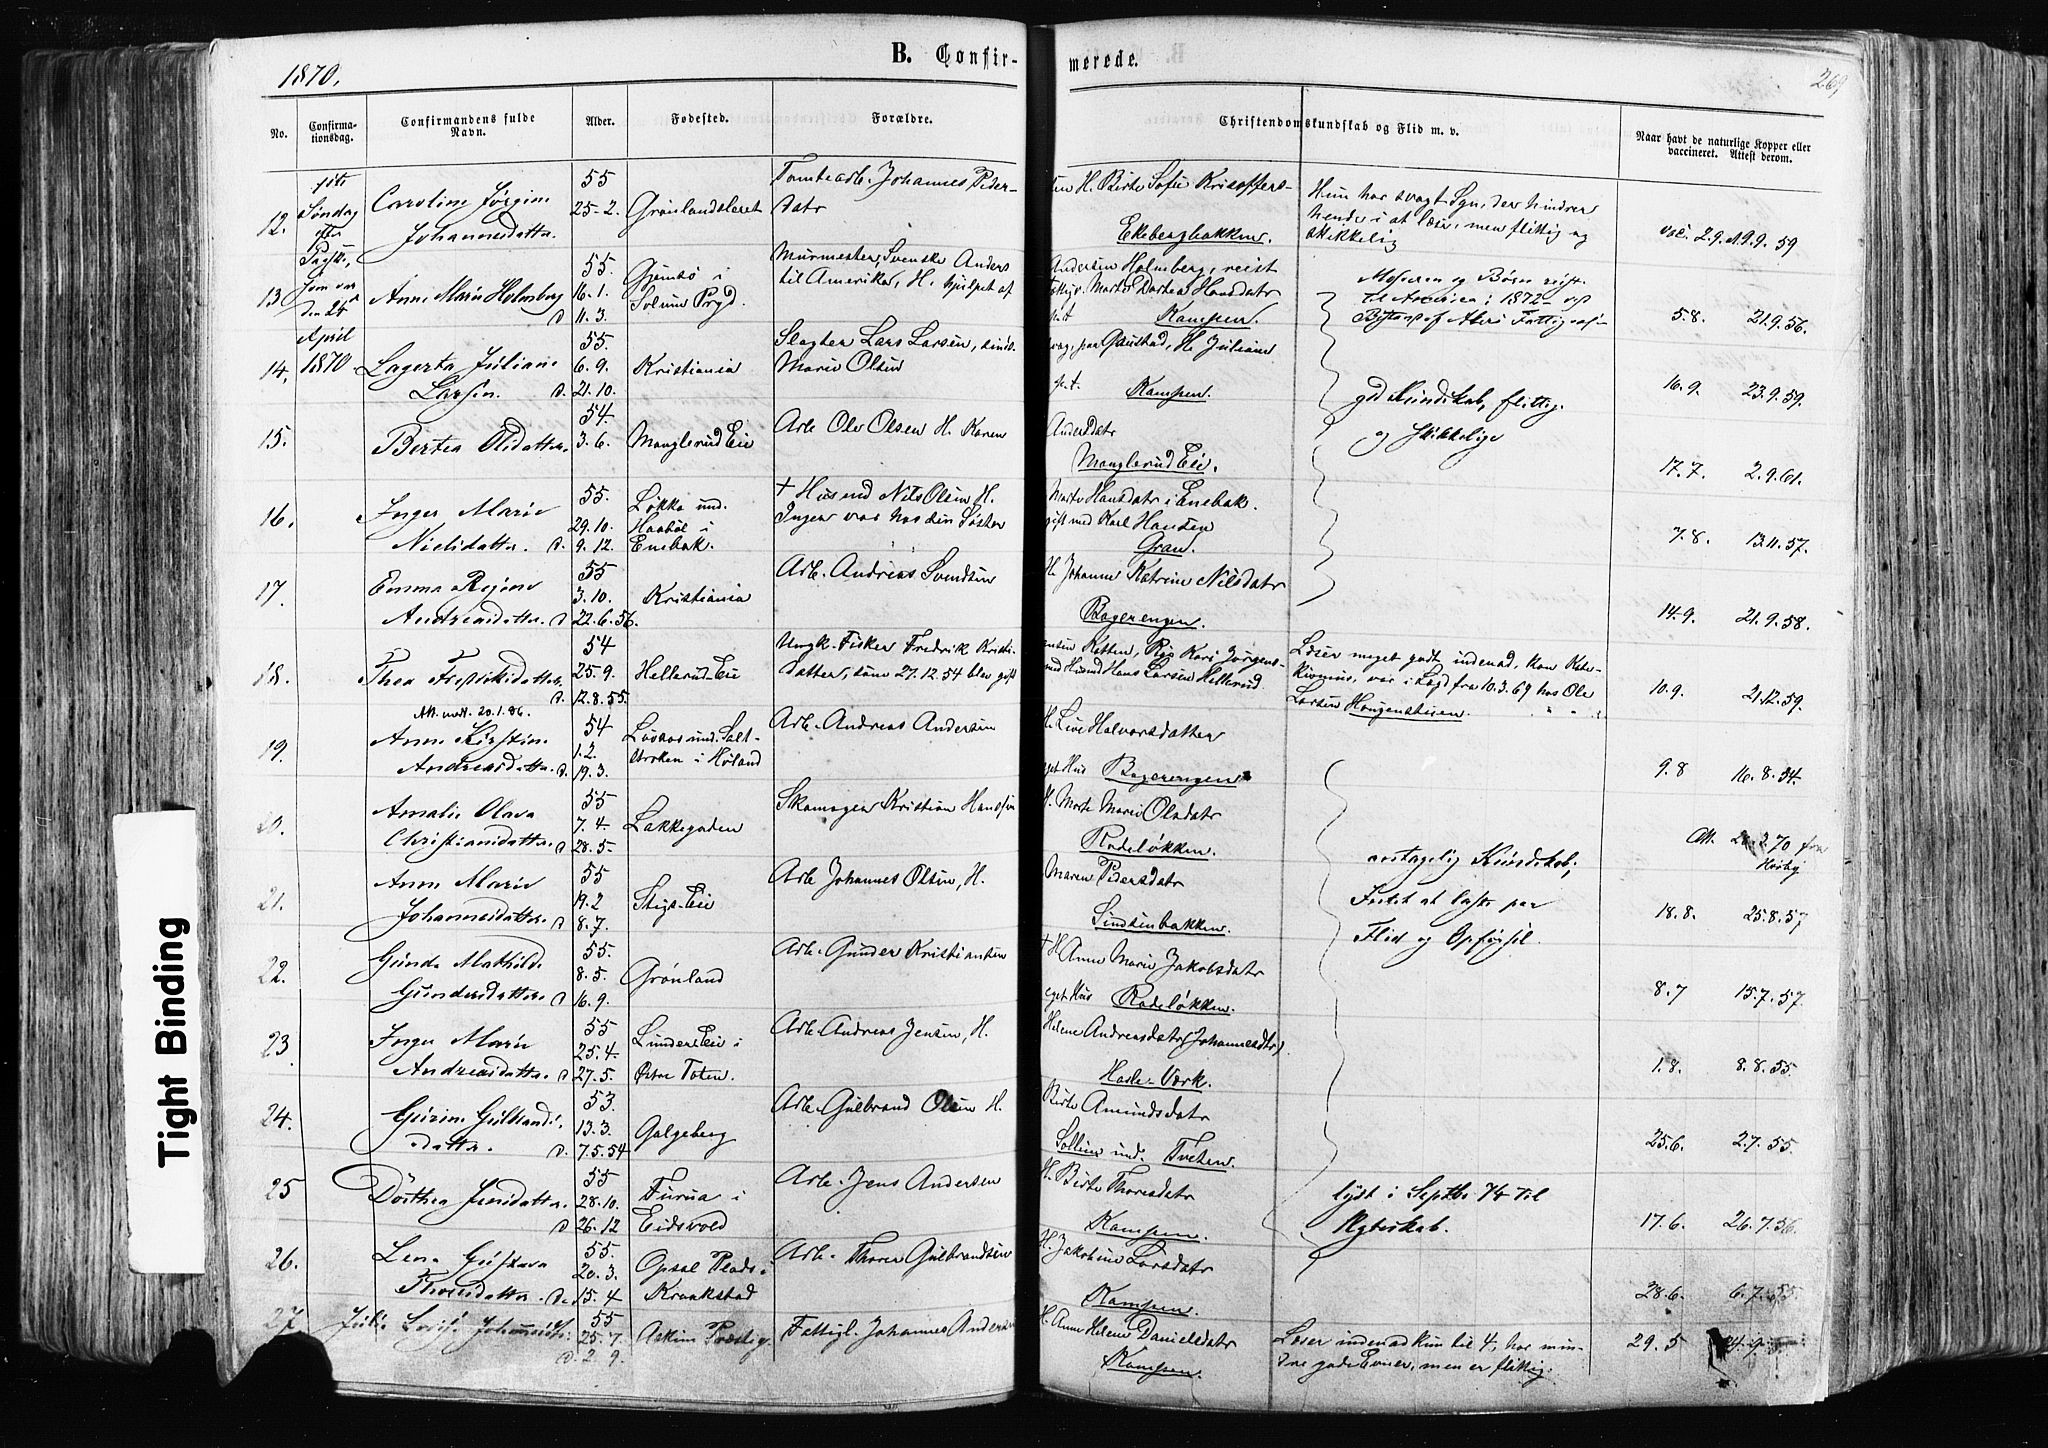 1870.
B. Confir-
merede.
269
No.
Confirma-
tionsdag.
Confirmandens fulde
Navn.
Alder.
Fødested.
Forældre.
Christendomskundskab og Flid m. v.
Naar havt de naturlige Kopper eller
vaccineret. Attest derom.
1ste
Søndag
efter
Paaske,
som var
den 24
April
1870
12.
Caroline Jørgine
Johannesdatter.
55
25-2.
Grønlandsleret
Tomtearb. Johannes Peder-
H. Birte Sofie Kristoffers-
datr
Ekebergbakken.
Hun har svagt Syn, der hindrer
hende i at læse, men flittig og
skikkelig
vac. 2.9. A 9.9.59
13
Anne Marie Holmberg
55.
16.1.
D 11.3.
i
Solum Prgd.
Murmester, Svenske Anders
Andersen Holmberg, reist
til Amerika, H. hjulpet af
Hansdatr
Kampen.
Moderen og Børn reist
til America i 1872
Bistand af Akers
5.8. 21.9.56.
14.
Lagerta Juliane
Larsen.
55.
6.9.
D. 21.10.
Kristiania
Slagter Lars Larsen, sinds-
svag, paa Gaustad, H. Juliane
Marie Olsen
p.t. Kampen.
god Kundskab, flittig
og skikkelige
16.9. 23.9.59.
15.
Bertea Olsdatter.
54.
3.6.
Manglerud Eie
Arb Ole Olsen H. Karen
Andersdatr
Manglerud Eie.
17.7. 2.9.61.
16.
Inger Marie
Nielsdatter.
55.
29.10.
D. 9.12.
Løkka und.
i
Enebak.
† Husmd Nils Olsen H.
Marte Hansdatr i Enebak.
Inger var hos sin Søster
gift med Karl Hansen
Gran.
7.8. 13.11.57.
17.
Emma Regine
Andreasdatter.
55
3.10.
D 22.6.56.
Kristiania
Arb. Andreas Svendsen
H. Johanne Katrine Nilsdatr
Bagerengen.
14.9. 21.9.58.
18.
Thea Fredriksdatter
54
25.9.
D. 12.8.55.
Hellerud Eie
Ungk. Fisker Fredrik Kristi-
ansen Ketten, Pige Kari Jørgens-
datter, som 27.12.54 blev gift
med Husmd Hans Larsen Hellerud.
Læser meget godt indenad, kan Kate-
kismus, var i Lægd fra 10.3.69 hos Ole
Larsen Haugensteien.
10.9. 21.12.59.
19.
Att. udst. 20.1.86.
Anne Kirstine
Andreasdatter
54
1.2.
D. 19.3.
und. Salt-
i Høland
Arb. Andreas Andersen
H. Live Halvorsdatter
eget Hus Bagerengen
9.8 16.8.54.
20.
Amalie Olava
Christiansdatter
55
7.4.
D 28.5.
Lakkegaden
Skomager Kristian Hansen
H. Marte Marie Olsdatr
Rodeløkken.
antagelig Kundskab;
at laste paa
Flid og Opførsel.
Att. 28.2.70 fra
21.
Anne Marie
Johannesdatter.
55
19.2
D 8.7.
Stigs-Eie
Arb Johannes Olsen, H.
Maren Pedersdatr
Sindsenbakken.
18.8. 25.8.57
22.
Gunda Mathilde
Gundersdatter.
55.
8.5.
D 16.9.
Grønland
Arb. Gunder Kristiansen
† H Anne Marie Jakobsdatr
eget Hus Rodeløkken.
8.7 15.7.57.
23
Inger Marie
Andreasdatter.
55
25.4.
D 27.5.
Lunders Eie i
Østre Toten.
Arb. Andreas Jensen, H.
Helene Andreasdatr (Johannesdtr).
Hasle-Værk.
1.8. 8.8.55.
24.
Gurine Gulbrands-
datter.
53.
13.3.
D. 7.5.54
Galgeberg
Arb. Gulbrand Olsen H.
Birte Amundsdatr
Sollien und. Tveten.
25.6. 2.7.55.
25
Dorthea Jensdatter.
55
28.10.
D 26.12
Furua i
Eidsvold
Arb. Jens Andersen
H. Birte Thoresdatr
Kampen.
lyst i Septbr 74 til
Ægteskab.
17.6. 26.7.56
26.
Lena Gustava
Thoresdatter.
55.
20.3.
D. 15.4
Opsal Plads i
Kraakstad
Arb. Thore Gulbrandsen
H. Jakobine Larsdatr
Kampen.
28.6. 6.7.55.
27
Julie Lovise Johannesdr.
55
25.7.
D. 2 9.
Askim Præstegj.
Fattigl. Johannes Andersen
H. Anne Helene Danielsdatr
Kampen.
Læser indenad kun til 4, har min-
dre gode Evner, men er flittig.
29.5
Tight Binding